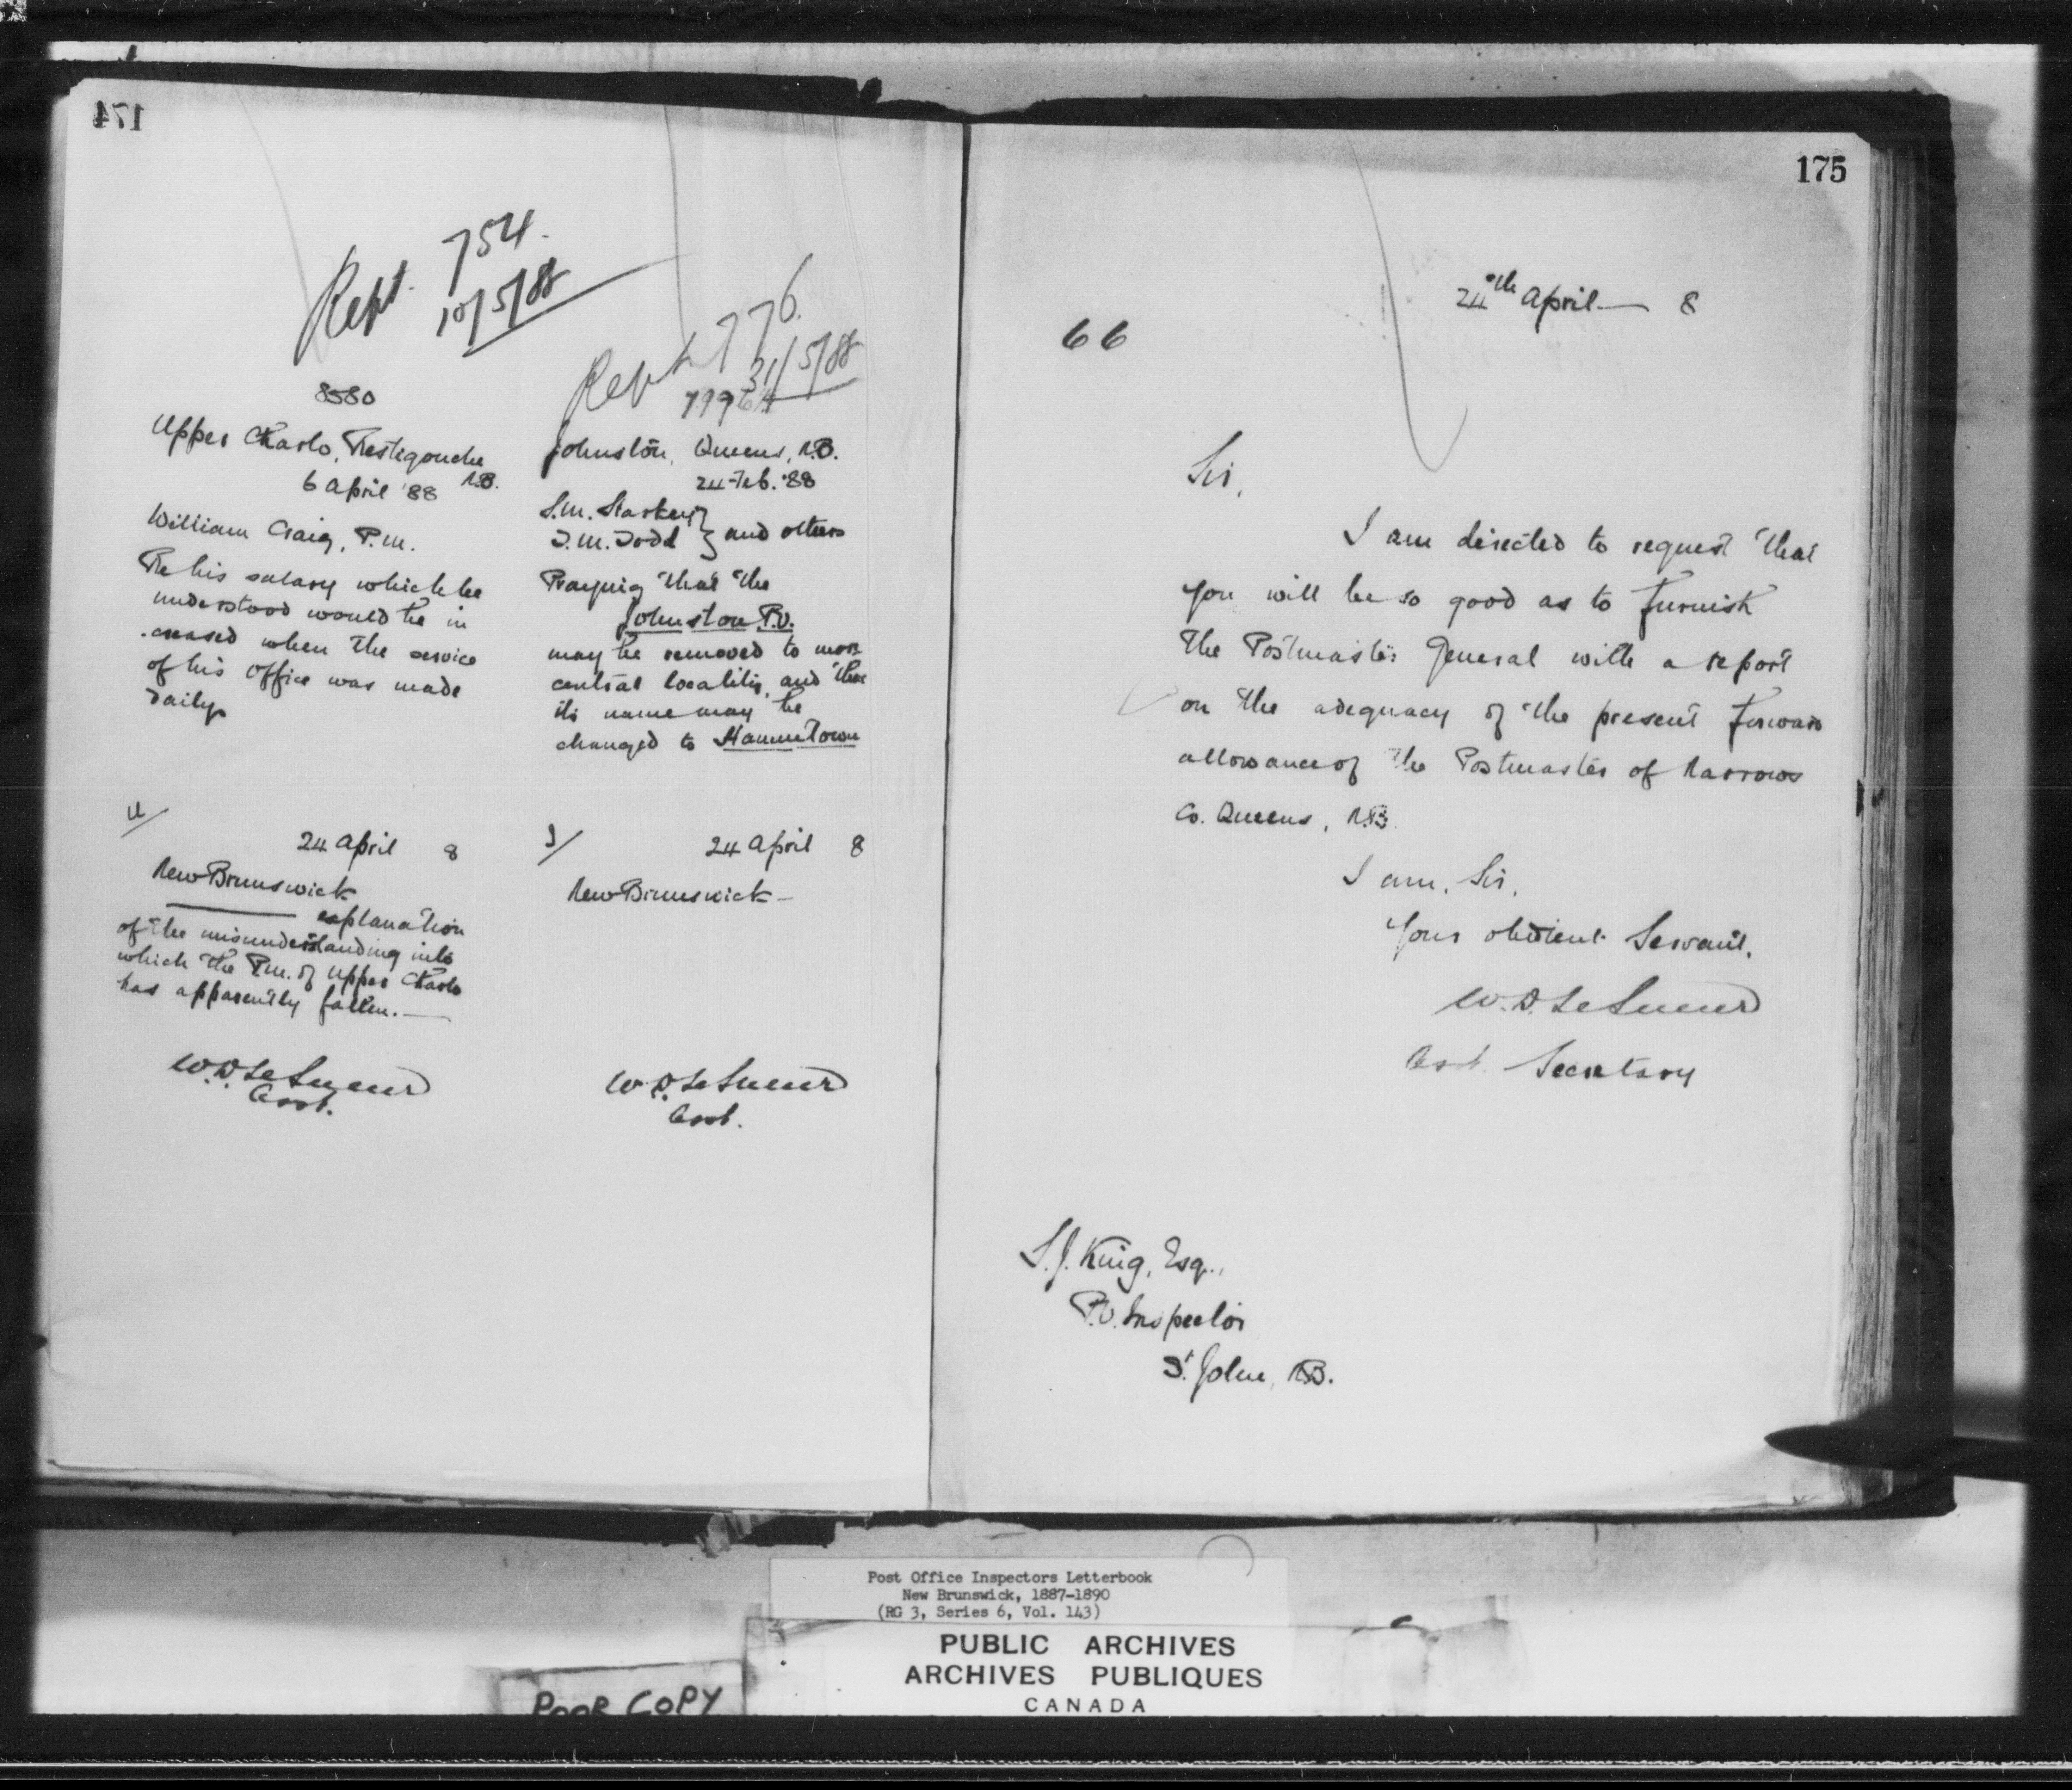 174
Rept. 754.
10/5/88
8580
Upper Charlo, Restigouche
N.B.
6 April '88
William Craig, P.M.
Re his salary which he
understood would be in
creased when the service
of his office was made
daily.
U/
24 April 8
New Brunswick
explanation
of the misunderstanding into
which the P.M. of Upper Charlo
has apparently fallen.
W.D. LeSueur
Asst.
Rept. 776.
31/5/88
Johnston, Queens, N.B.
24 Feb. '88
S.M. Starkey
and others
Praying that the
Johnston P.O.
may be removed to more
central locality, and that
its name may be
changed to
J/
24 April 8
New Brunswick
W.D. LeSueur
Asst.
175
24th April 8
66
Sir,
I am directed to request that
you will be so good as to furnish
the Postmaster General with a report
on the adequacy of the present forward
allowance of the Postmaster of Narrows
Co. Queens, N.B.
I am, Sir,
Your obedient Servant,
W.D. LeSueur
Asst. Secretary
S.J. King, Esq.,
P.O. Inspector
St. John, N.B.
Post Office Inspectors Letterbook
New Brunswick, 1887-1890
(RG 3, Series 6, Vol. 143)
PUBLIC ARCHIVES
ARCHIVES PUBLIQUES
CANADA
POOR COPY